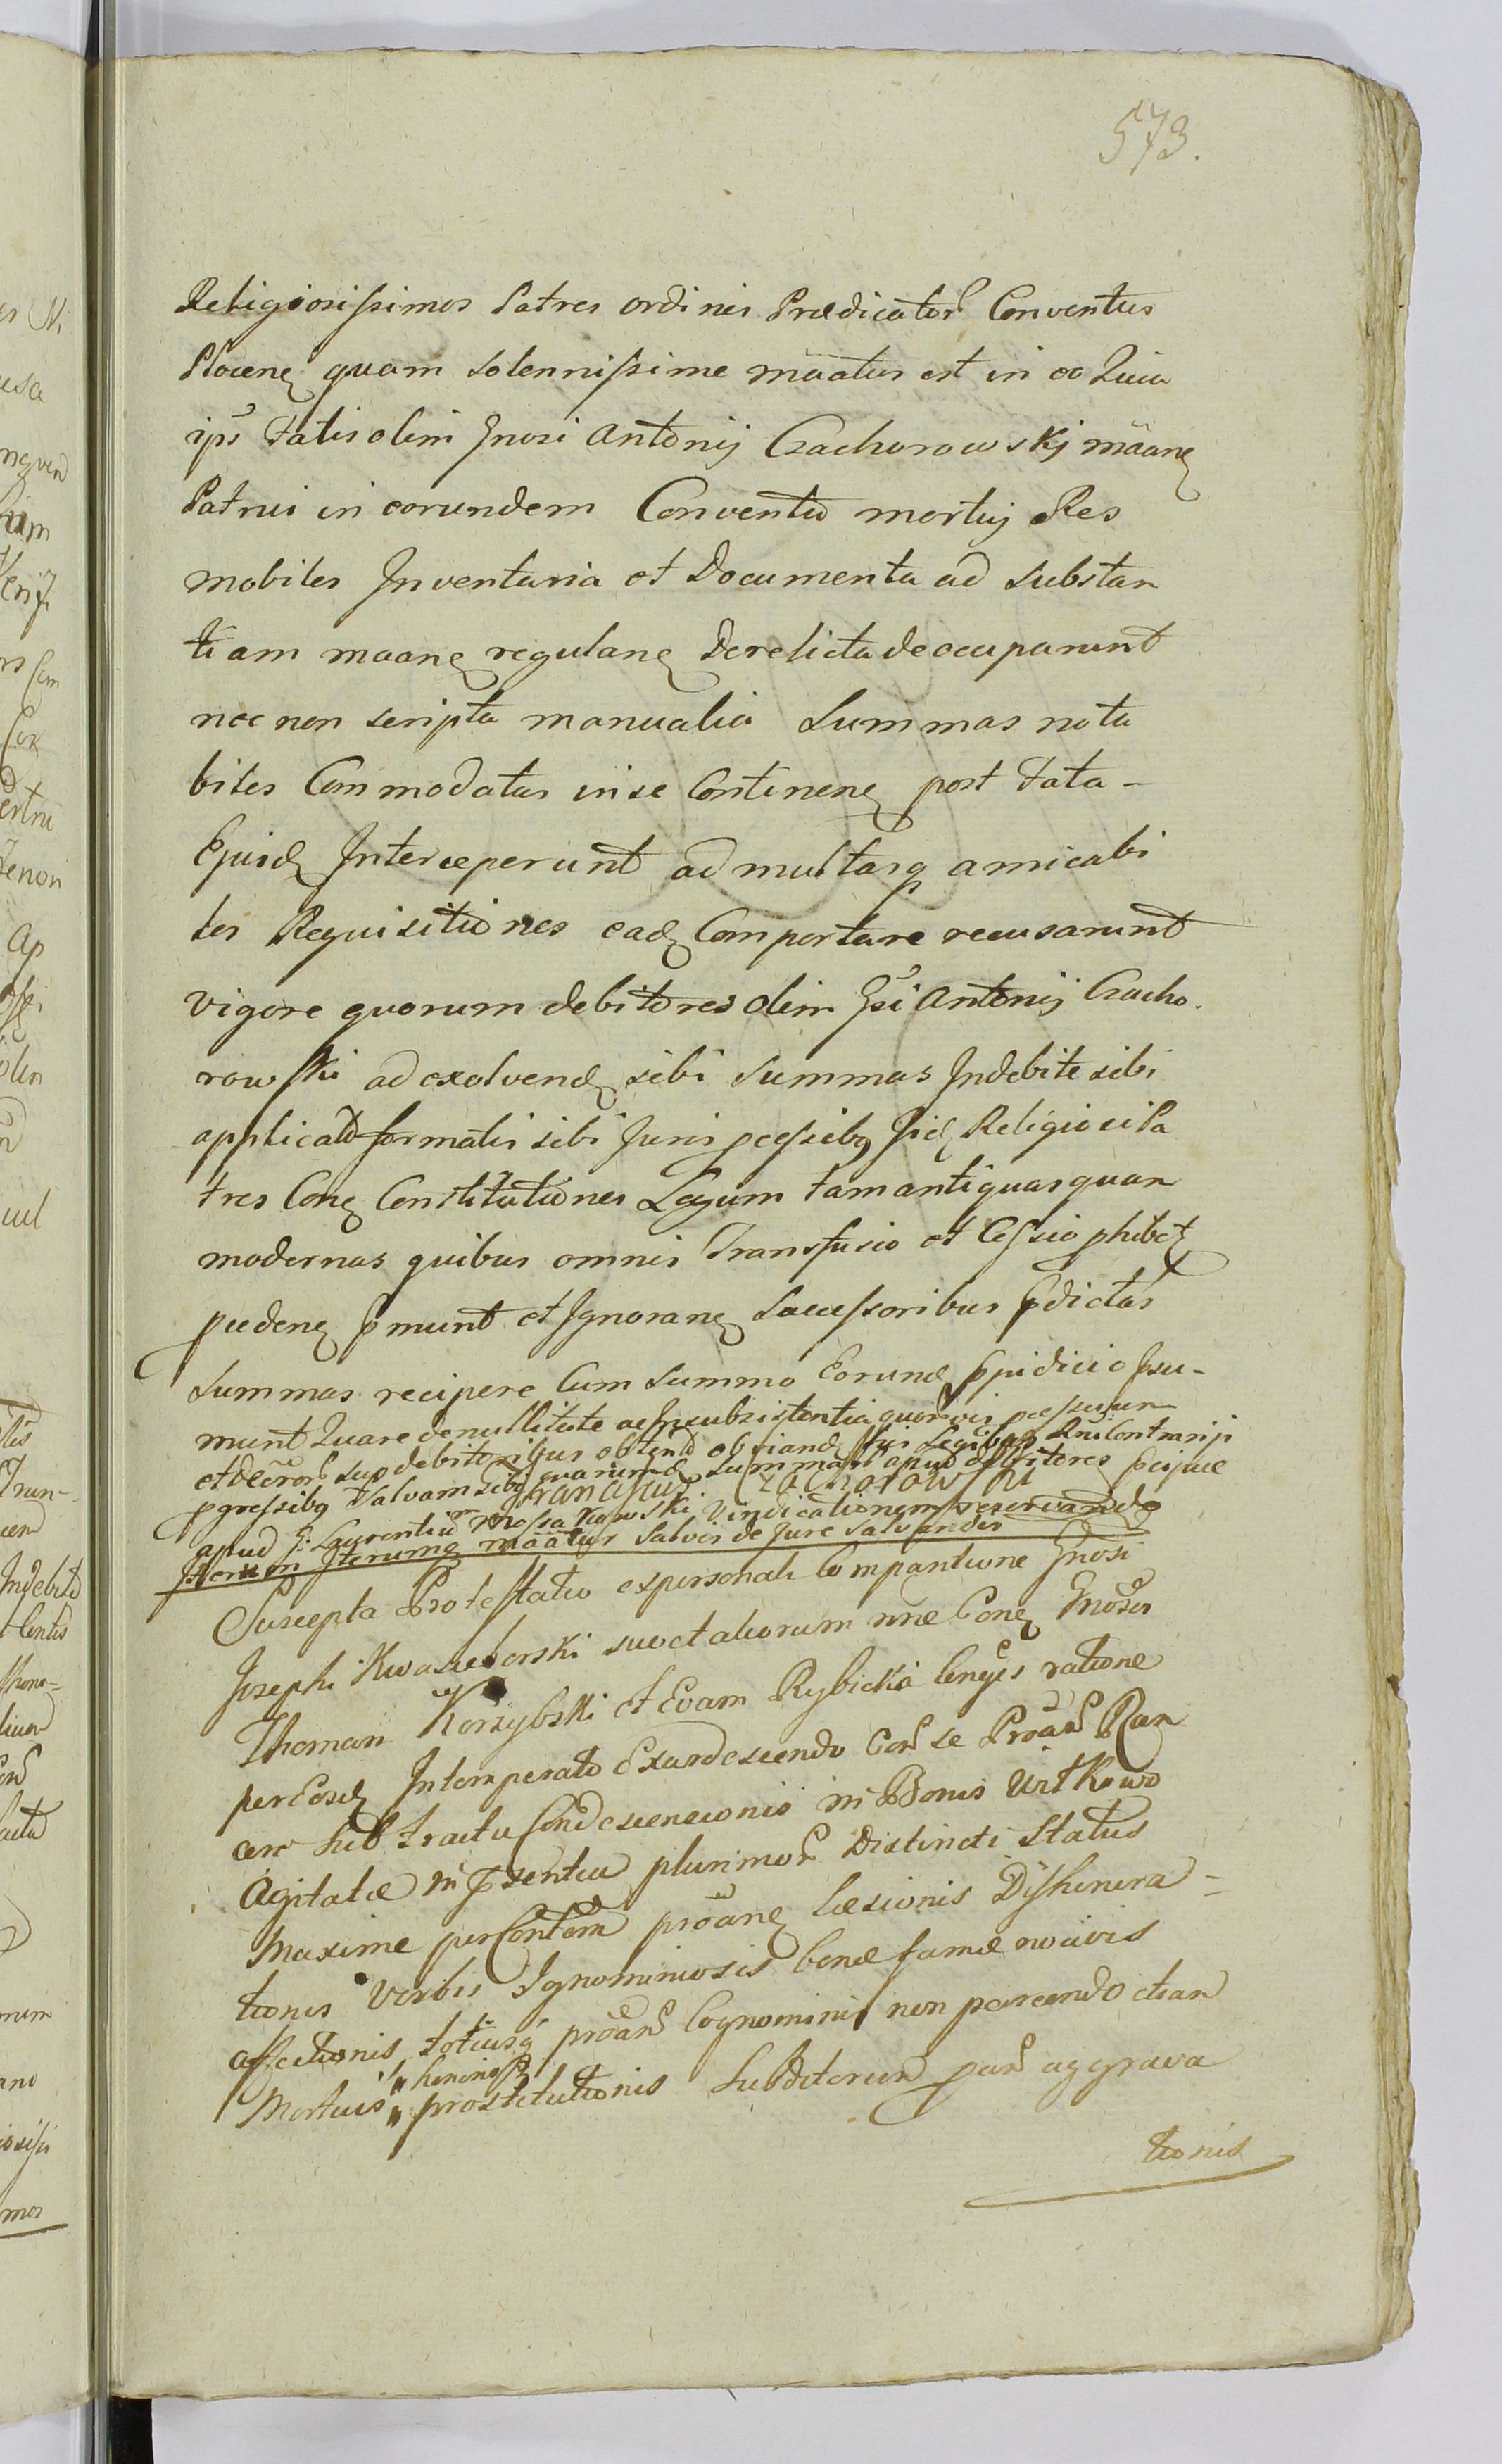 573.
Religiosissimos Patres ordinis Prædicator Conventus
Plocen quam solennissime māatus est in eo Quia
ips fatis olim Gnosi Antonij Czachorowskj māan
Patrui in eorundem Conventu mortuj Res
mobiles Inventaria et Documenta ad substan
tiam māan regulan derelicta deoccuparunt
nec non scripta manualia Summas nota
biles Commodatas in se Continen post fata -
Ejusd Interceperunt ad multasq amicabi
les Requisitiones ead Comportare recusarunt
vigore quorum debitores olim Gsi Antonij Czacho.
rowski ad exolvend sibi Summas Indebite sibi
applicato formatis sibi Juris pcessibq Iid Religiosi Pa
tres Con Constitutiones Legum tam antiquas quam
modernas quibus omnis Transfusio et Cessio phibet
pceden pmunt et Ignoran Successoribus pdictas
Summas recipere Cum Summo Eorund pjudicio psu-
munt Quare de nullitate ac Insubsistentia quorvis pcessuum
et decror sup debitoribus obtent obviand suis Legibq Rni Contrarijs
pgressibq Salvam sibi quarumd Summar apud debitores pcipue
Franciscus Czachorowski
apud G: Laurentiū Mossakowski Vindicationem reservando
Iterum Iterumq māatur Salvis de Jure Salvandis
Suscepta Protestatio ex personali Compantione Gnosi
Josephi Kwasieborski suo et aliorum nne Con Gnosos
Thomam Korzybski et Evam Rybicka Conges ratione
per Eosd Intemperato Exardescendo Con se Proan Ran
cere sub tractu Condescensionis in Bonis Witkowo
Agitatæ in psentia plurimor Distincti Status
Maxime per Contem proan læsionis Dishonora =
tionis Verbis Ignominiosis bonæ famæ
affectionis totiusq proan Cognominis non parcendo etiam
Mortuis " prostitutionis Subditorum pan aggrava
tionis